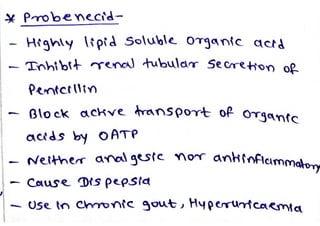 * Probenecid-
- Highly lipid soluble organic acid
- Inhibit renal tubular secretion of
Penicillin
- Block active transport of organic
acids by OATP
- Neither analgesic nor antiinflammatory
- Cause Dispepsia
- Use in chronic gout, Hyperuricaemia